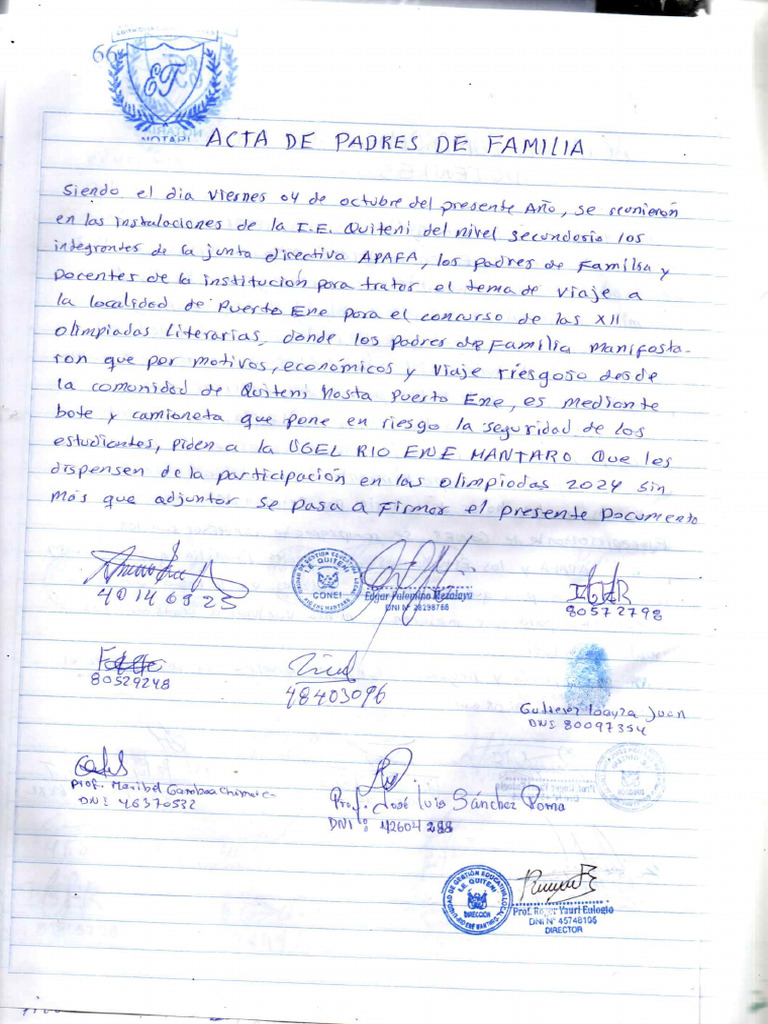 66
ET
NOTARI
ACTA DE PADRES DE FAMILIA
Siendo el dia viernes 04 de octubre del presente Año, se reunieron
en las instalaciones de la I.E. Quiteni del nivel secundario los
integrantes de la junta directiva APAFA, los padres de Familia y
Docentes de la institución para tratar el tema de viaje a
la localidad de Puerto Ene para el concurso de las XII
olimpiadas literarias, donde los padres de Familia manifesta-
ron que por motivos, económicos y viaje riesgoso desde
la comunidad de Quiteni hasta Puerto Ene, es mediante
bote y camioneta que pone en riesgo la seguridad de los
estudiantes, piden a la UGEL RIO ENE MANTARO Que les
dispensen de la participación en las olimpiadas 2024 sin
más que adjuntar se pasa a Firmar el presente Documento
40146923
UNIDAD DE GESTIÓN EDUCATIVA LOCAL
I.E. QUITENI
CONEI
RIO ENE MANTARO
Edgar Palomino
DNI N° 28298766
80572798
80529248
48403096
Gutierrez loayza Juan
DNI 80097354
Prof. Maribel Gamboa
DNI: 46370532
Prof. José Luis Sánchez Poma
DNI: 42604288
UNIDAD DE GESTIÓN EDUCATIVA LOCAL
I.E. QUITENI
DIRECCIÓN
RIO ENE MANTARO
Prof. Roger Yauri Eulogio
DNI N° 45748105
DIRECTOR